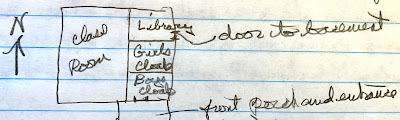 N
Library
door to basement
Class
Room
Girls
Cloak
Boys
Cloak
front porch and entrance